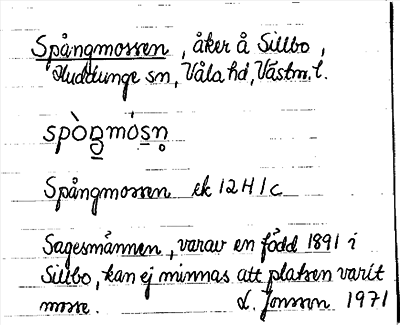 Spångmossen, åker å Sillbo,
Huddunge sn, Våla hd, Västm. l.
spòŋmósn̥
Spångmossen ek 12H1c
Sagesmännen, varav en född 1891 i
Sillbo, kan ej minnas att platsen varit
mosse. L. Jonsson 1971